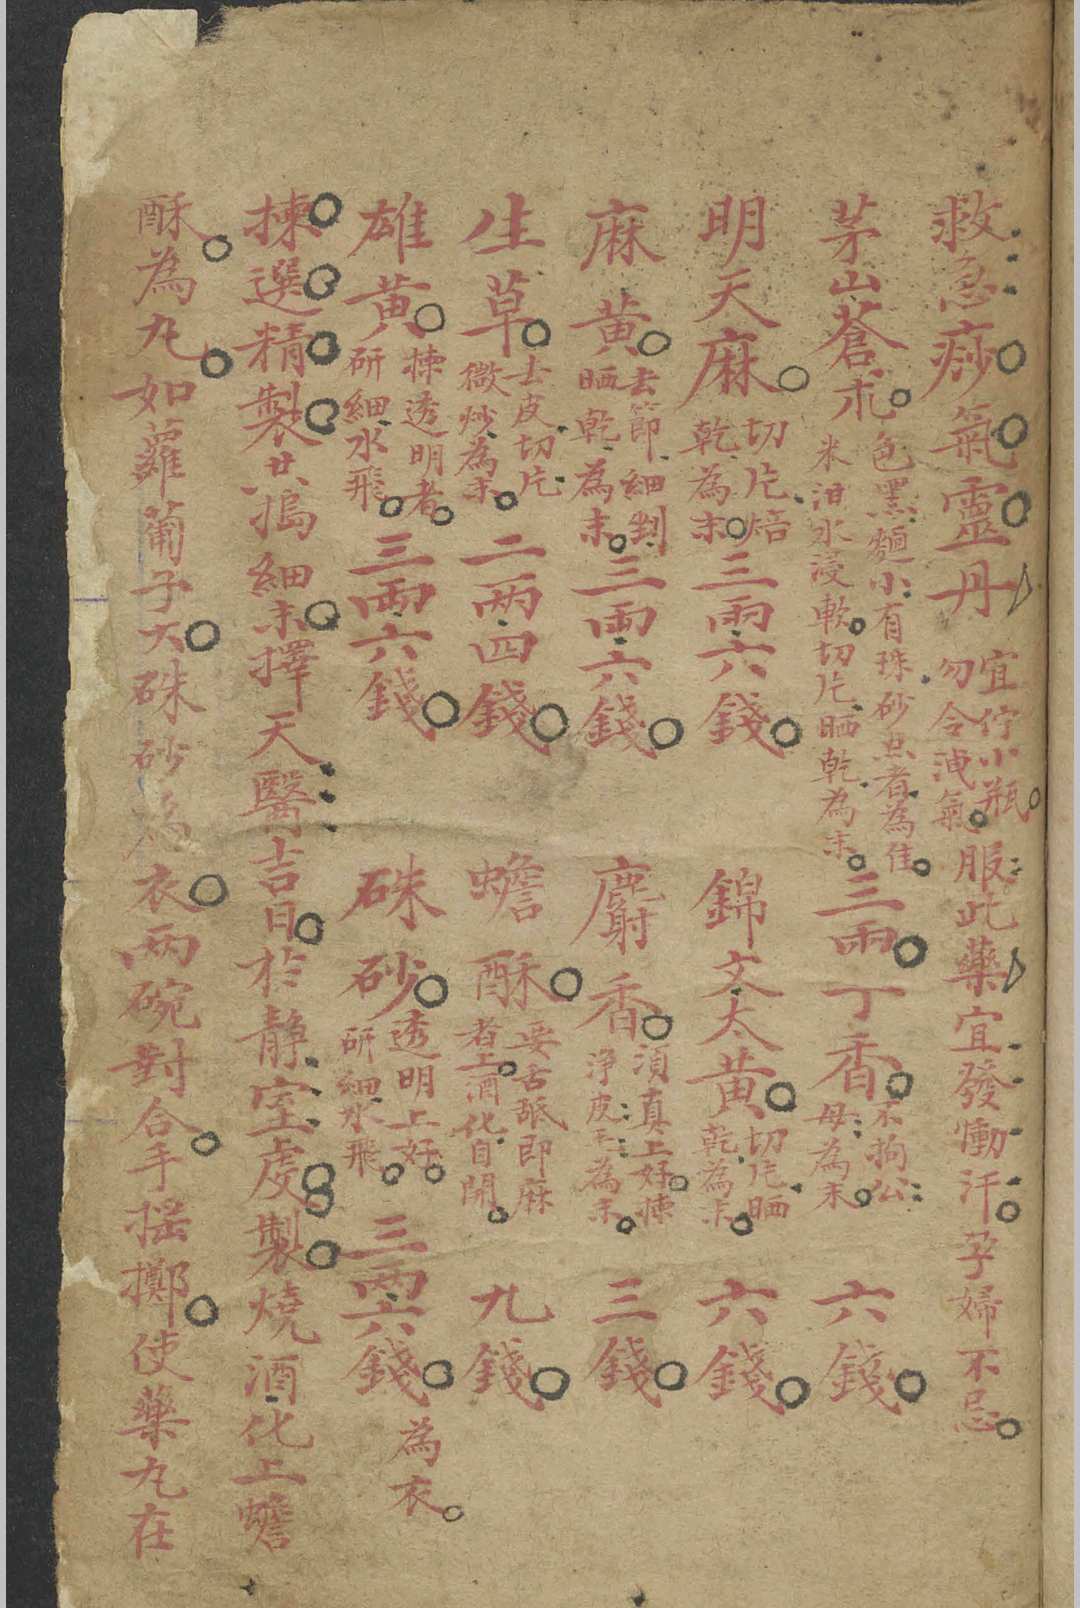 救急痧氣靈丹 宜佇小瓶勿令洩氣 服此藥宜發慟汗孕婦不忌
茅山蒼朮 色黑麵小有珠砂点者為佳米泔水浸軟切片晒乾為末 三兩 丁香 不拘公母為末 六錢
明天麻 切片焙乾為末 三兩六錢 錦文大黄 切片晒乾為末 六錢
麻黄 去節細剉晒乾為末 三兩六錢 麝香 須真上好揀浄皮毛為末 三錢
生草 去皮切片微炒為末 二两四錢 蟾酥 要舌舐即麻者上酒化自開 九錢
雄黄 揀透明者研細水飛 三兩六錢 硃砂 透明上好研細水飛 三兩六錢 為衣
揀選精製共搗細末擇天醫吉日於静室虔製燒酒化上蟾
酥為丸如蘿葡子大硃砂為衣兩碗對合手揺擲使藥丸在